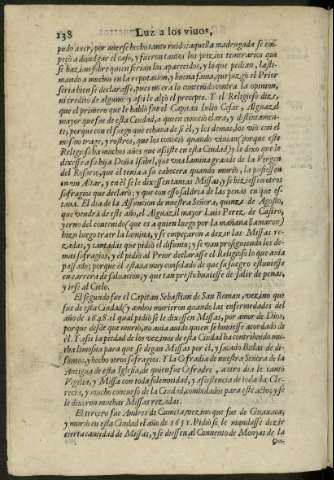 138 Luz a los viuos,
pedo asir, por auerse hecho tanto ruido: aquella madrugada se em-
pezò a diuulgar el caso, y fueron tantos los juizios temerarios que
se hazian sobre quien serian los aparecidos, y lo que pedian, lasti-
mando a muchos en la reputacion, y buena fama, que juzgò el Prior
seria bien se declarasse, pues ni era lo contenido contra la opinion,
ni credito de alguno: y assi le alçò el precepto. Y el Religioso dize,
que el primero que le hablò fue el Capitan Iulio Cesar, Alguazil
mayor que fue de esta Ciudad, a quien conociò clara, y distintamen-
te, porque con el fuego que echaua de sì el, y los demas, los viò con el
mesmo trage, y rostros, que los conociò quando viuian (porque este
Religioso ha muchos años que assiste en esta Ciudad) y le dixo que le
dixesse a su hija Doña Isabel, que vna lamina grande de la Virgen
del Rosario, que èl tenia a su cabecera quando muriò, la pusiessen
en vn Altar, y en èl se le dixessen tantas Missas, y se hiziessen otros
sufragios que declarò; y que con esso saldria de las penas en que es-
taua. El dia de la Assumcion de nuestra Señora, quinze de Agosto,
que vendrà de este año, el Alguazil mayor Luis Perez, de Castro,
yerno del contenido (que es a quien luego por la mañana llamaron)
hizo luego traer la lamina, y se empezaron a dezir las Missas re-
zadas, y cantadas que pidiò el difunto; y se van prosiguiendo los de-
mas sufragios, y el pidiò al Prior declarasse el Religioso lo que auia
passado; porque èl estaua muy consolado de que su suegro estuuiesse
en carrera de saluacion, y que tan presto huuiesse de salir de penas,
y irse al Cielo.
El segundo fue el Capitan Sebastian de San Roman, vezino que
fue de esta Ciudad (y ambos murieron quando las enfermedades del
año de 1648. el qual pidiò se le dixessen Missas, por amor de Dios,
porque desde que muriò, no auia auido quien se huuiesse acordado de
èl. Y assi la piedad de los vezinos de esta Ciudad ha contribuido mu-
cha limosna para que se digan Missas por èl, y sacado Bulas de di-
funtos, y hecho otros sufragios. Y la Cofradia de nuestra Señora de la
Antigua de esta Iglesia, de quien fue Cofrade, otro dia le cantò
Vigilia, y Missa con toda solemnidad, y assistencia de toda la Cle-
recia, y mucho concurso de la Ciudad, combidados para este acto; y se
le dixeron muchas Missas rezadas.
El tercero fue Andres de Cumeta, vezino que fue de Guaxaca,
y muriò en esta Ciudad el año de 1651. Pidiò se le mandasse dezir
cierta cantidad de Missas, y se diessen al Conuento de Monjas de la
Con-